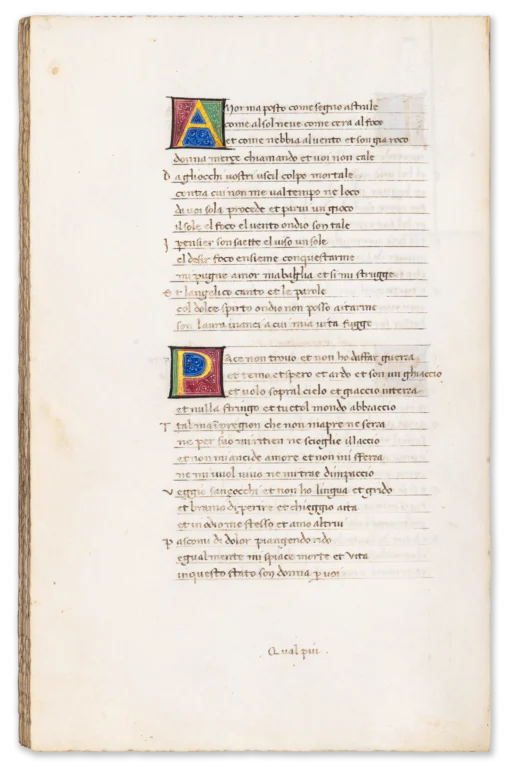 AMor ma posto come segno a strale
come al sol neve come cera al foco
et come nebbia al vento et son gia roco
donna merze chiamando et voi non cale
D agliocchi vostri uscil colpo mortale
contra cui non me val tempo ne loco
da voi sola procede et parvi un gioco
il sole el foco el vento ondio son tale
I pensier son saette el viso un sole
el desir foco ensieme con questarme
mi pugne amor mabaglia et si mi strugge
Et langelico canto et le parole
col dolce spirto ondio non posso aitarme
son laura inanci a cui mia vita fugge
PAce non trovo et non ho da ffar guerra
et temo et spero et ardo et son un ghiaccio
et volo sopral cielo et giaccio in terra
et nulla stringo et tuctol mondo abbraccio
T tal ma in pregion che non mapre ne serra
ne per suo mi ritien ne scioglie il laccio
et non mi ancide amore et non mi sferra
ne mi vuol vivo ne mi trae dimpaccio
V eggio sanzocchi et non ho lingua et grido
et bramo di perire et chieggio aita
et in odio me stesso et amo altrui
P ascomi di dolor piangendo rido
egualmente mi spiace morte et vita
in questo stato son donna p voi
Qual piu